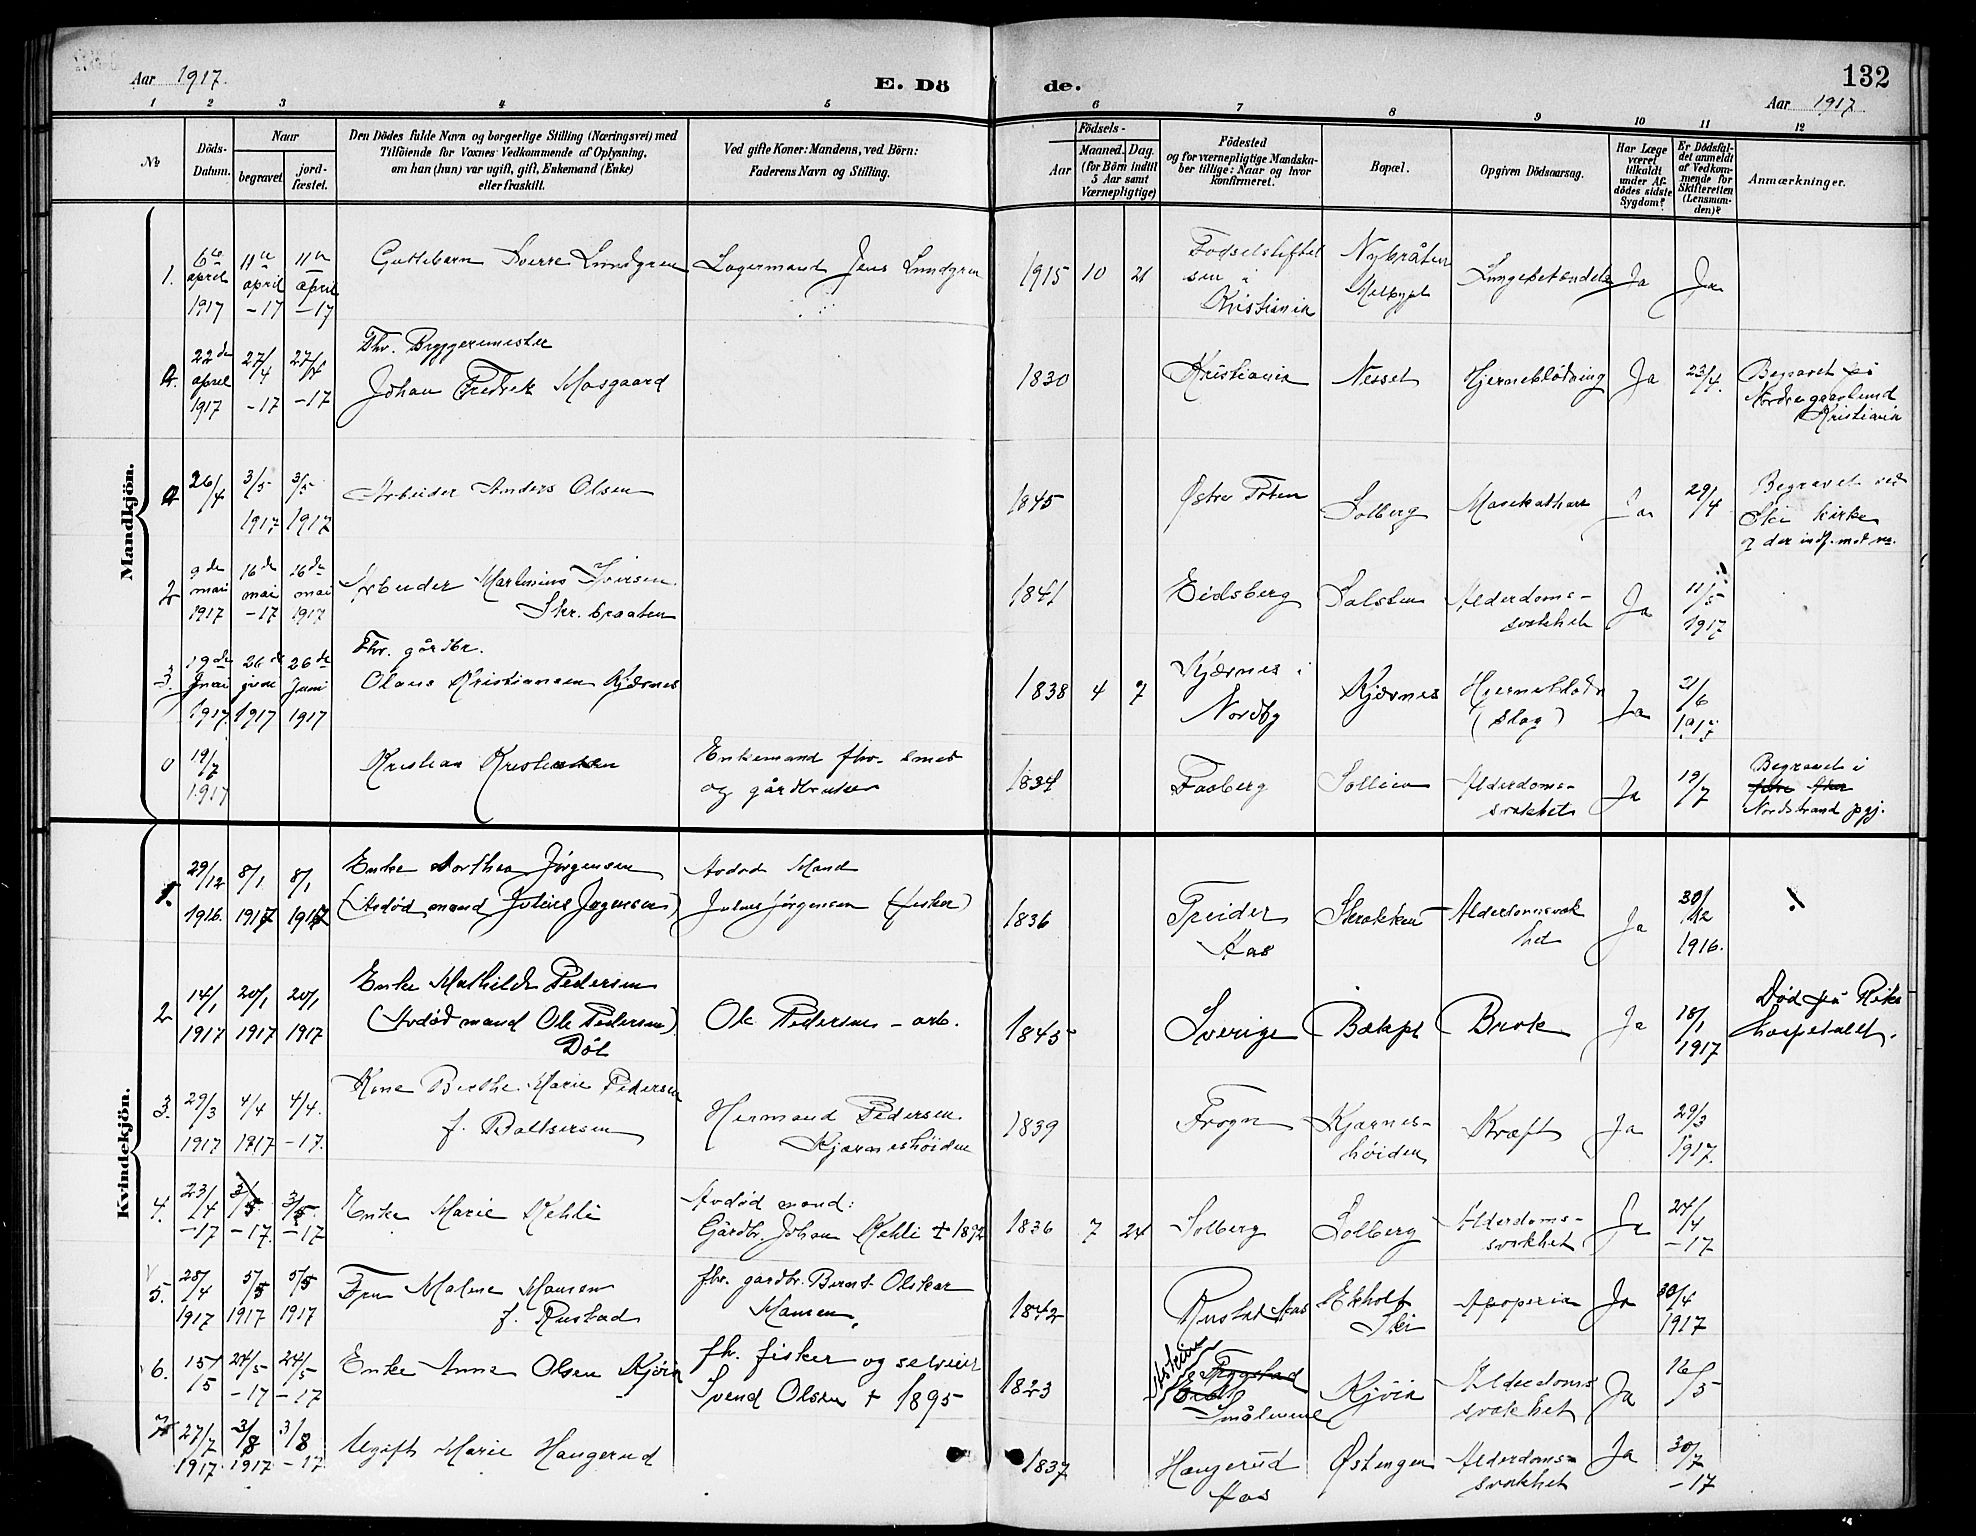 Aar 1917.
E. Dö
de.
132
Aar 1917
1 2 3 4 5 6 7 8 9 10 11 12
№
Döds-
Datum.
Naar
begravet
jord-
fæstet.
Den Dödes fulde Navn og borgerlige Stilling (Næringsvei) med
Tilföiende for Voxnes Vedkommende af Oplysning,
om han (hun) var ugift, gift, Enkemand (Enke)
eller fraskilt.
Ved gifte Koner: Mandens, ved Börn:
Faderens Navn og Stilling.
Födsels-
Aar
Maaned. Dag.
(for Börn indtil
5 Aar samt
Værnepligtige)
Födested
og for værnepligtige Mandska-
ber tillige: Naar og hvor
konfirmeret.
Bopæl.
Opgiven Dödsaarsag.
Har Læge
været
tilkaldt
under Af-
dödes sidste
Sygdom?
Er Dödsfal-
det anmeldt
af Vedkom-
mende for
Skifteretten
(Lensman-
den)?
Anmærkninger.
Mandkjön.
1.
april
1917
april
-17
april
-17
Guttebarn Sverre Lundgren
Lagermand Jens Lundgren
1915 10 21
Fødselsstiftel
sen i
Kristiania
Nybråten
Lungebetendels
Ja
Ja
22de
april
1917
27/4
-17
27/4
-17
Fhv. Byggemester
Johan Fredrik Mosgaard
1830
Kristiania
Nesset
Hjerneblødning
Ja
23/4.
Begravet på
Kristiania
26/4
3/5
1917
3/5
1917
Arbeider Anders Olsen
1845
Østre Toten
Solberg
Ja
29/4
Begravet ved
Ski kirke
9de
mai
1917
16de
mai
-17
16de
mai
1917
Arbeider Martinius Iversen
Skr. braaten
1841
Eidsberg
Alderdoms-
svakhet
Ja
11/5
1917
3.
19de
1917
26de
juni
1917
26de
juni
1917
Fhv. gårdbr.
Olaus Kristiansen Kjærnes
1838 4 7
Kjærnes i
Nordby
Kjærnes
Hjerneblødn
(slag)
Ja
21/6
1917
0
19/7
1917
Kristian Kristiansen
Enkemand fhv. smed
og gårdbruker
1834
Faaberg
Alderdoms-
svakhet
Ja
19/7
Begravet i
Nordstrand pgj.
Kvindekjön.
1.
29/12
1916.
8/1
1917
8/1
1917
Enke Dorthea Jørgensen
(Avdød mand Julius Jørgensen)
Avdød Mand
Julius Jørgensen (fisker)
1836
Treider
Aas
Alderdomsvak
hed
Ja
30/12
1916.
2
14/1
1917
20/1
1917
20/1
1917
Enke Mathilde Pedersen
(Avdød mand Ole Pedersen)
Døl
Ole Pedersen - arb.
1845
Sverige
Brok
Ja
18/1
1917
Død på Riks
hospitalet.
3.
29/3
1917
4/4
1917
4/4.
-17.
Kone Berthe Marie Pedersen
f. Baltsersen
Hermand Pedersen
Kjærneshøiden
1839
Frogn
Kjærnes-
høiden
Kræft
Ja
29/3
1917.
4.
23/4
-17
3/5
-17.
3/5.
-17
Enke Marie Kehli
Avdød mand:
Gårdbr. Johan Kehli + 1892
1836 7 24
Solberg
Solberg
Alderdoms-
svakhet
Ja
24/4
-17
5.
28/4
1917
5/5
1917
5/5
1917
Fru Maline Hansen
f. Rustad
fhv. gaardbr. Bernt Oluskar
Hansen.
1842
Rustad Aas
Ekholt
Ski
Apopexia
Ja
30/4
1917
6.
15/5
24/5
-17
24/5
-17
Enke Anne Olsen Kjøia
fh. fisker og selveier
Svend Olsen + 1895
1823
Askim
Trøgstad
Smålenene
Kjøia
Alderdoms
svakhet
Ja
16/5
7
27/7
1917
3/8
1917
3/8
-17
Ugift Marie Haugerud
1837
Haugerud
Aas
Østengen
Alderdoms-
svakhet
Ja
30/7
-17